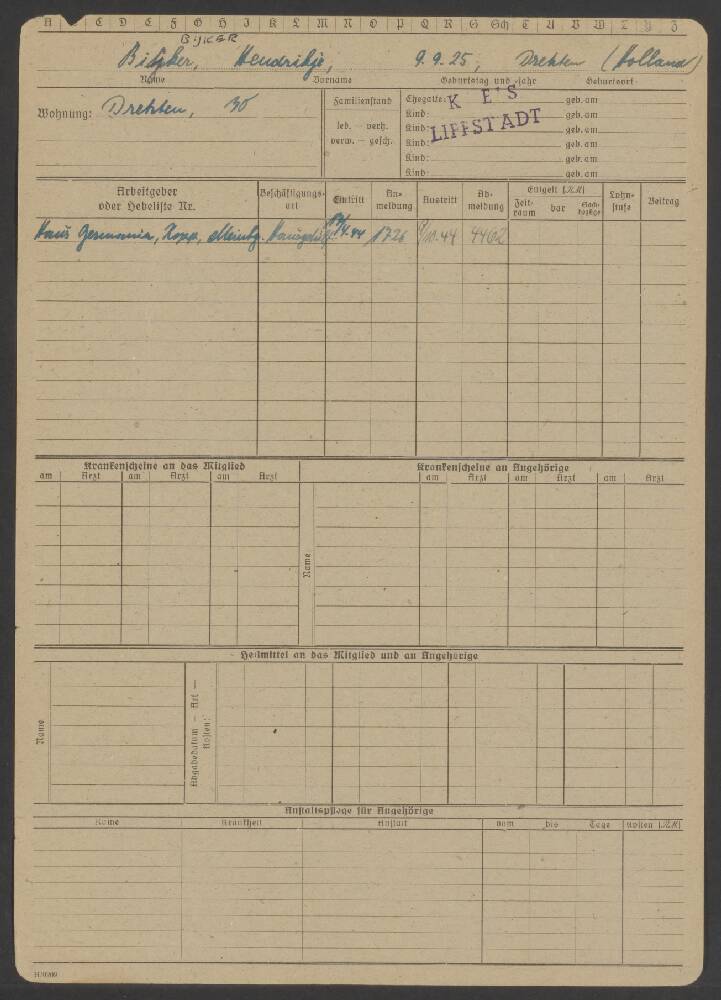 A B C D E F G H J K L M N O P Q R S Sch T U V W X Y Z
BIJKER
Bijker, Hendrikje, 9.9.25, Drehten (Holland)
Name Vorname Geburtstag und -jahr Geburtsort
Wohnung: Drehten, 30
Familienstand
led. — verh.
verw. — gesch.
Ehegatte: geb. am
Kind: geb. am
Kind: geb. am
Kind: geb. am
Kind: geb. am
Kind: geb. am
K E'S
LIPPSTADT
Arbeitgeber oder Hebeliste Nr. Beschäftigungsart Eintritt Anmeldung Austritt Abmeldung Entgelt (RM) Zeitraum bar Sachbezüge Lohnstufe Beitrag
Haus Germania, Kopp, 1726 4462
Krankenscheine an das Mitglied Krankenscheine an Angehörige
am Arzt am Arzt am Arzt am Arzt am Arzt am Arzt
Name
Heilmittel an das Mitglied und an Angehörige
Name
Abgabedatum — Art —
Kosten:
Anstaltspflege für Angehörige
Name Krankheit Anstalt vom bis Tage Kosten (RM)